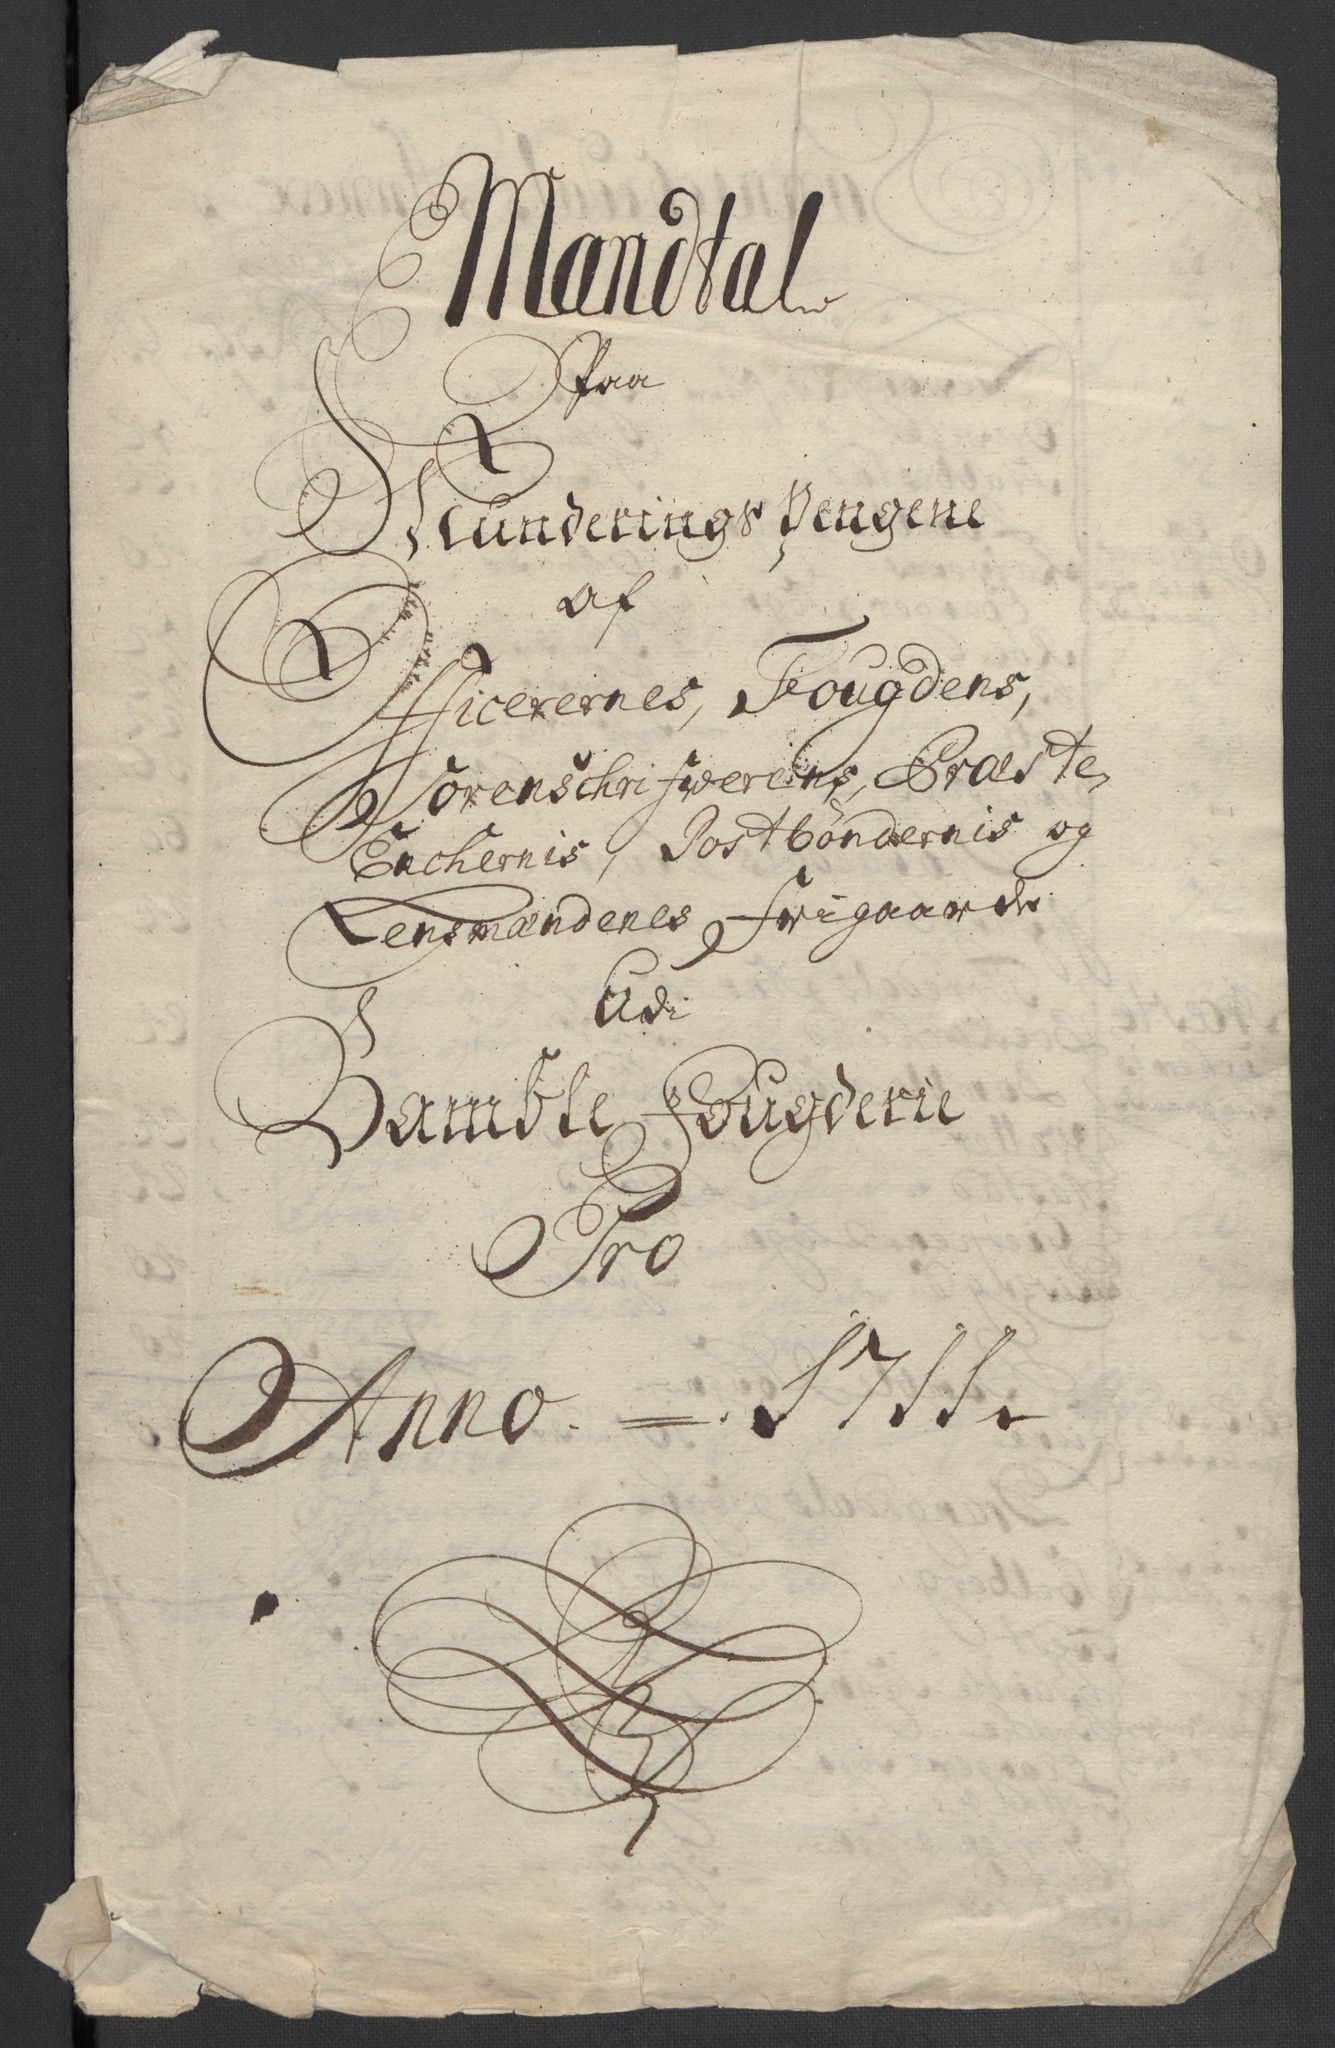 Mandtal
Paa
Munderings Pengene
af
Officerernes, Fougdens,
Sorenschrifwerens, Præste,
Enchernis, Postbøndernis og
Lensmændenes frigaarde
Udi
Bamble Fougderie
Pro
Anno = 1711